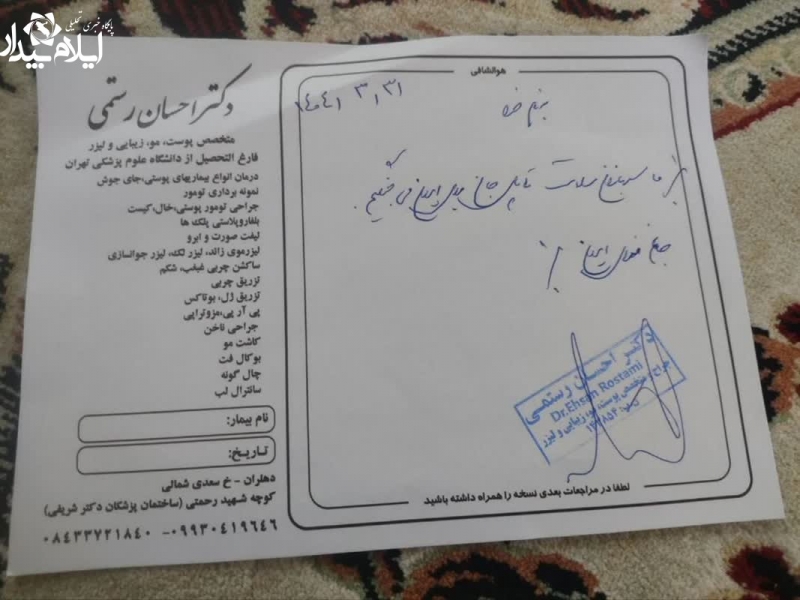 پایگاه خبری تحلیلی
ایلام بیدار
دکتر احسان رستمی
متخصص پوست، مو، زیبایی و لیزر
فارغ التحصیل از دانشگاه علوم پزشکی تهران
درمان انواع بیماریهای پوستی،جای جوش
نمونه برداری تومور
جراحی تومور پوستی،خال،کیست
بلفاروپلاستی پلک ها
لیفت صورت و ابرو
لیزرموی زائد، لیزر لک، لیزر جوانسازی
ساکشن چربی غبغب، شکم
تزریق چربی
تزریق ژل، بوتاکس
پی آر پی،مزوتراپی
جراحی ناخن
کاشت مو
بوکال فت
چال گونه
سانترال لب
نام بیمار:
تاریخ:
دهلران - خ سعدی شمالی
کوچه شهید رحمتی (ساختمان پزشکان دکتر شریفی)
۰۸۴۳۳۷۲۱۸۴۰ -۰۹۹۳۰۴۱۹۶۴۶
هوالشافی
۱۴۰۴/۳/۳۱
بنام خدا
ما سربازان سلامت تا پای جان برای ایران می جنگیم.
جانم فدای ایران
دکتر احسان رستمی
Dr.Ehsan Rostami
جراح و متخصص پوست، مو، زیبایی و لیزر
لطفا در مراجعات بعدی نسخه را همراه داشته باشید